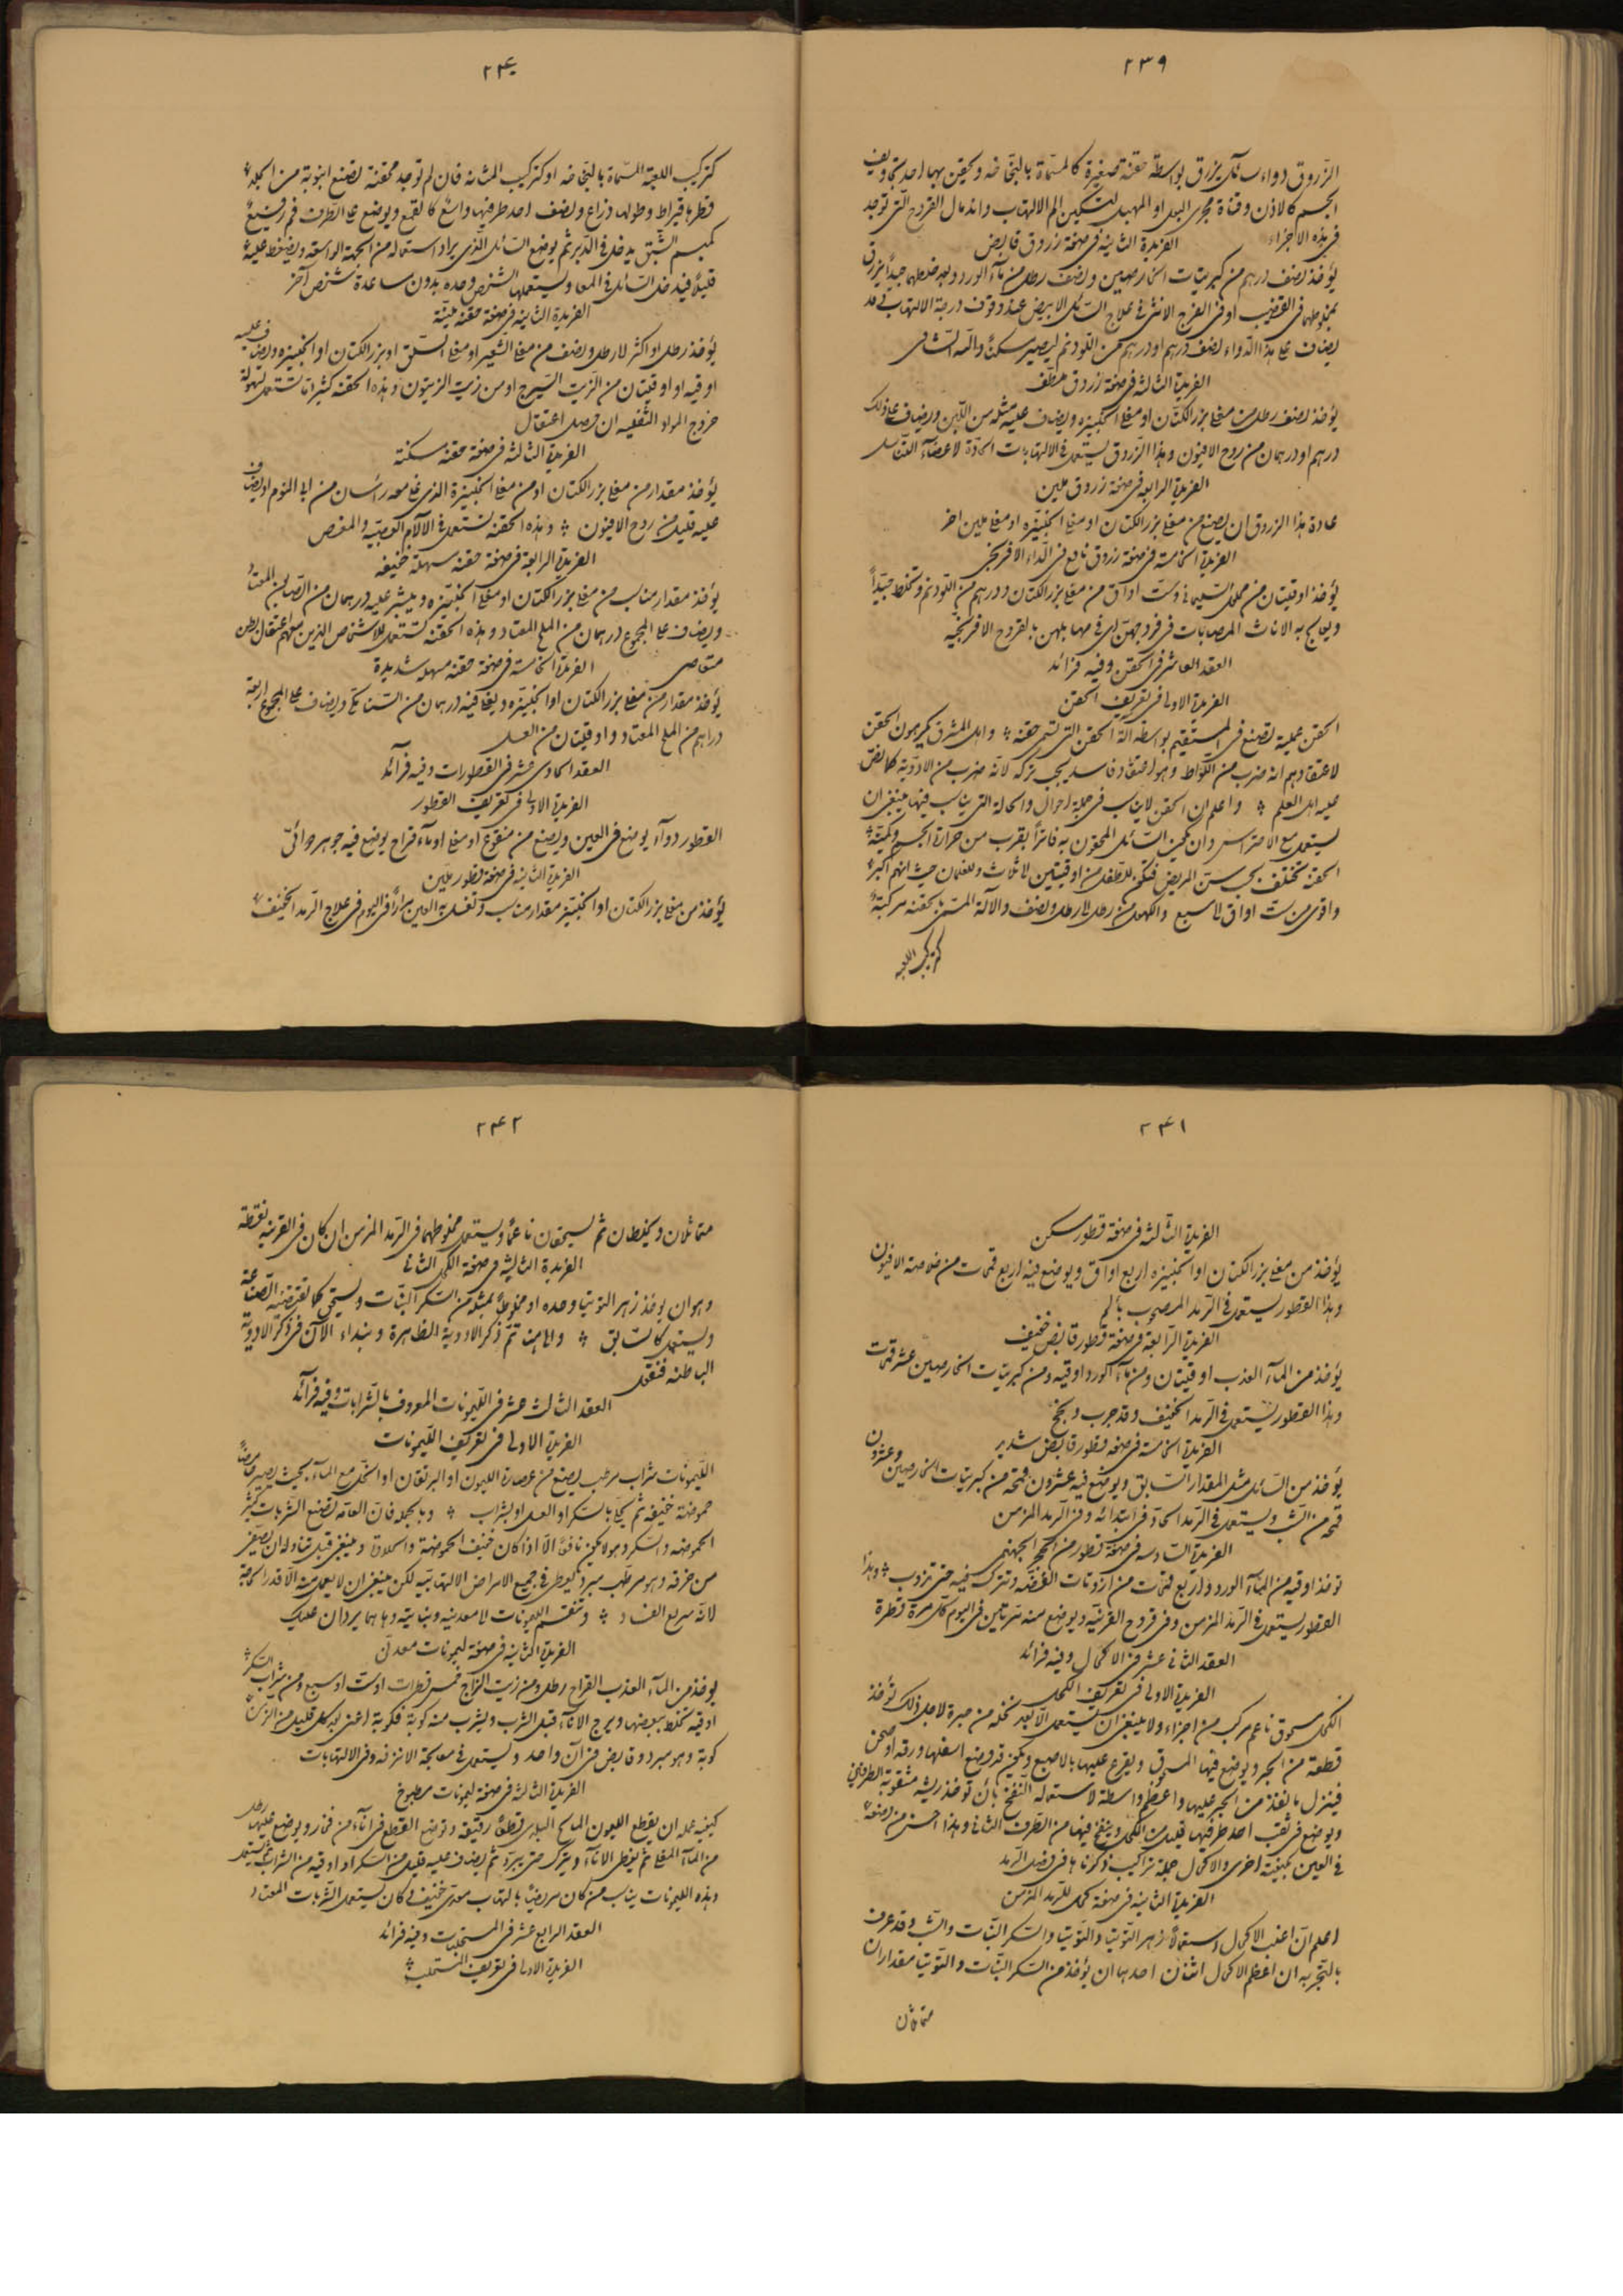 ٢٣٩
الزّروق دواء سائل يزرق بواسطة حقنة صغيرة كالمسمّاة بالبخّاخه ويحقن بها احد تجاويف
الجسم كالاذن وقناة مجرى البول او المهبل لتسكين الم الالتهاب واندمال القروح الّتى توجد
فى هذه الاجزاء الفريدة الثانية فى صفة زروق قابض
يؤخذ نصف درهم من كبريتات الخارصين ونصف رطل من مآء الورد وبعد خلطهما جيداً يزرق
بمخلوطهما فى القضيب او فى الفرج الانثى فى علاج السّائل الابيض عند وقوف درجة الالتهاب فى حد
يضاف على هذا الدّواء نصف درهم او درهم من اللّودنم ليصير مسكناً والله الشافى
الفريدة الثالثة فى صفة زروق ملطّف
يؤخذ نصف رطل من مغلى بزر الكتّان او مغلى الخبيزه ويضاف عليه مثله من اللّبن ويضاف على ذلك
درهم او درهمان من روح الافيون وهذا الزّروق يستعمل فى الالتهابات الحادّة لاعضآء التناسل
الفريدة الرابعه فى صفة زروق ملين
عادة هذا الزروق ان يصنع من مغلى بزر الكتان او مغلى الخبيزه او مغلى ملين اخر
الفريدة الخامسة فى صفة زروق نافع فى الدّاء الافرنجى
يؤخذ اوقيتان من محلول السّليمانى وستّ اواق من مغلى بزر الكتان ودرهم من اللّودنم وتخلط جيّداً
ويعالج به الاناث المصابات فى فروجهنّ اى فى مهابلهن بالقروح الافرنجيّه
العقد العاشر فى الحقن وفيه فرائد
الفريدة الاولى فى تعريف الحقن
الحقن عملية تصنع فى المستقيم بواسطة آلة الحقن التى تسمى حقنة واهل المشرق يكرهون الحقن
لاعتقادهم انه ضرب من اللّواط وهو اعتقاد فاسد يجب تركه لانّه ضرب من الادوية كما نصّ
عليه اهل العلم واعلم ان الحقن لا يناسب فى جملة احوال والحالة التى يناسب فيها ينبغى ان
يستعمل مع الاحتراس وان يكون السّائل المحقون به فاتراً بقرب من حرارة الجسم وكميّة
الحقنه تختلف بحسب سنّ المريض فتكون للاطفال من اوقيتين لا ثلاث وللغلمان حيث انهم اكبر
واقوى من ستّ اواق لا سبع والكهول من رطل لا رطل ونصف والآلة المسمّاة بحقنه مركبة
كتركيب اللعبه
٢٤٠
كتركيب اللعبة المسمّاة بالبخّاخه او كتركيب المثانه فان لم توجد محقنة تصنع انبوبة من الجلد
قطرها قيراط وطولها ذراع ونصف احد طرفيها واسع كالقمع ويوضع على الطرف فم رفيع
كمبسم الشّبق يدخل فى الدّبر ثم يوضع السّائل الّذى يراد استعماله من الجهة الواسعة ويضغط عليه
قليلاً فيدخل السّائل فى المعا ويستعملها الشخص وحده بدون مساعدة شخص آخر
الفريدة الثانيه فى صفة حقنة ملينة
يؤخذ رطل او اكثر لا رطل ونصف من مغلى الشّعير او مغلى السّلق او بزر الكتان او الخبيزه ويضاف عليه
اوقيه او اوقيتان من الزّيت السّيرج او من زيت الزيتون وهذه الحقنه كثيراً ما تستعمل لسهولة
خروج المواد الثفليه ان حصل اعتقال
الفريدة الثالثه فى صفة حقنه مسكنه
يؤخذ مقدار من مغلى بزر الكتان او من مغلى الخبيزة الذى غلى معه رأسان من ابا النوم او يضاف
عليه قليل من روح الافيون وهذه الحقنه تستعمل فى الآلام العصبيّه والمغص
الفريدة الرابعة فى صفة حقنه مسهلة خفيفه
يؤخذ مقدار مناسب من مغلى بزر الكتان او مغلى الخبيزه ويبشر عليه درهمان من الصّابون المعتاد
ويضاف على المجموع درهمان من الملح المعتاد وهذه الحقنه تستعمل للاشخاص الذين معهم اعتقال بطن
متعاصى الفريدة الخامسة فى صفة حقنه مسهله شديدة
يؤخذ مقدار من مغلى بزر الكتان او الخبيزه ويغلى فيه درهمان من السّنامكى ويضاف على المجموع اربعة
دراهم من الملح المعتاد واوقيتان من العسل
العقد الحادى عشر فى القطورات وفيه فرآئد
الفريدة الاولى فى تعريف القطور
القطور دوآء يوضع فى العين ويصنع من منقوع او مغلى او مآء قراح يوضع فيه جوهر دوائى
الفريدة الثانيه فى صفة قطور ملين
يؤخذ من مغلى بزر الكتان او الخبيز مقدار مناسب وتغسل به العين مراراً فى اليوم فى علاج الرّمد الخفيف
٢٤١
الفريدة الثّالثه فى صفة قطور مسكن
يؤخذ من مغلى بزر الكتان او الخبيزه اربع اواق ويوضع فيه اربع قمحات من خلاصة الافيون
وهذا القطور يستعمل فى الرّمد المصحوب بالم
الفريدة الرّابعة فى صفة قطور قابض خفيف
يؤخذ من المآء العذب اوقيتان ومن مآء الورد اوقيه ومن كبريتات الخارصين عشر قمحات
وهذا القطور يستعمل فى الرّمد الخفيف وقد جرب ونجح
الفريدة الخامسة فى صفه قطور قابض شديد
يؤخذ من السّائل مثل المقدار السّابق ويوضع فيه عشرون قمحه من كبريتات الخارصين وعشرون
قمحه من الشّب ويستعمل فى الرّمد الحادّ فى ابتدائه وفى الرّمد المزمن
الفريدة السّادسه فى صفة قطور من الحجر الجهنمى
تؤخذ اوقيه من المآء الورد واربع قمحات من ازوتات الفضّه وتترك فيه حتى تذوب وهذا
القطور يستعمل فى الرّمد المزمن وفى قروح القرنيّه ويوضع منه مرّتين فى اليوم كل مرة قطرة
العقد الثانى عشر فى الاكحال وفيه فرائد
الفريدة الاولى فى تعريف الكحل
الكحل مسحوق ناعم مركب من اجزاء ولا ينبغى ان يستعمل الّا بعد نخله من حبرة لاجل ذلك تؤخذ
قطعة من الحبر ويوضع فيها المسحوق ويقرع عليها بالاصبع ويكون قد وضع اسفلها ورقه او صحن
فينزل ما نفذ من الحبر عليها واعظم واسطة لاستعماله النفخ بان تؤخذ ريشه مثقوبة الطرفين
ويوضع فى ثقب احد طرفيها قليل من الكحل وينفخ فيها من الطّرف الثانى وهذا احسن من وضعه
فى العين بكيفية اخرى والاكحال جملة تراكيب ذكرناها فى فصل الرّمد
الفريدة الثانيه فى صفة كحل للرّمد المزمن
اعلم انّ اغلب الاكحال استعمالاً زهر التّوتيا والتّوتيا والسّكر النّبات والشّب وقد عرف
بالتّجربه ان اعظم الاكحال اثنان احدهما ان يؤخذ من السّكر النّبات والتّوتيا مقداران
متماثلان
٢٤٢
متماثلان ويخلطان ثم يسحقان ناعماً ويستعمل مخلوطهما فى الرّمد المزمن ان كان فى القرنيه نقطه
الفريدة الثالثه فى صفة الكحل الثانى
وهو ان يؤخذ زهر التوتيا وحده او مخلوطاً بمثله من السّكر النّبات ويسحق كما تقتضيه الصّناعة
ويستعمل كالسّابق والى هنا تمّ ذكر الادوية الظاهرة ونبداء الآن فى ذكر الادوية
الباطنه فنقول
العقد الثالث عشر فى اللّيمونات المعروف بالشّرابات وفيه فرآئد
الفريدة الاولى فى تعريف اللّيمونات
اللّيمونات شراب مرطب يصنع من عصارة الليمون او البرتقان او الخلّ مع المآء بحيث يصير حامضاً
حموضة خفيفه ثم يحلّى بالسكر او العسل او بشراب وبالجمله فانّ العامّه تصنع الشّربات كثير
الحموضه والسّكر وهو لا يكون نافعاً الّا اذا كان خفيف الحموضة والحلاوة وينبغى قبل تناوله ان يصفى
من خرقه وهو مرطب مبرد يعطى فى جميع الامراض الالتهابيّه لكن ينبغى ان لا يعمل منه الّا قدر الحاجة
لانّه سريع الفساد وتنقسم الليمونات لا معدنيه ونباتيّه وها هما يردان عليك
الفريدة الثانيه فى صفة ليمونات معدنى
يؤخذ من المآء العذب القراح رطل ومن زيت الزّاج خمس قطرات او ست او سبع ومن شراب السّكر
اوقيه تخلط ببعضها ويرج الانآء قبل الشّرب ويشرب منه كوبة فكوبة اعنى بعد كل قليل من الزمان
كوبة وهو مبرد وقابض فى آن واحد ويستعمل فى معالجة الانزفه وفى الالتهابات
الفريدة الثالثة فى صفة ليمونات مطبوخ
كيفيه عمله ان يقطع الليمون المالح البلدى قطعاً رقيقه وتوضع القطع فى انآء من فخار ويوضع عليها رطل
من المآء المغلى ثم يغطى الانآء ويترك حتى يبرد ثم يضاف عليه قليل من السكر او اوقيه من الشّراب ثم يستعمل
وهذه الليمونات يناسب من كان مريضاً بالتهاب معدى خفيف وكان يستعمل الشّربات المعتاد
العقد الرابع عشر فى المستحلبات وفيه فرائد
الفريدة الاولى فى تعريف المستحلب